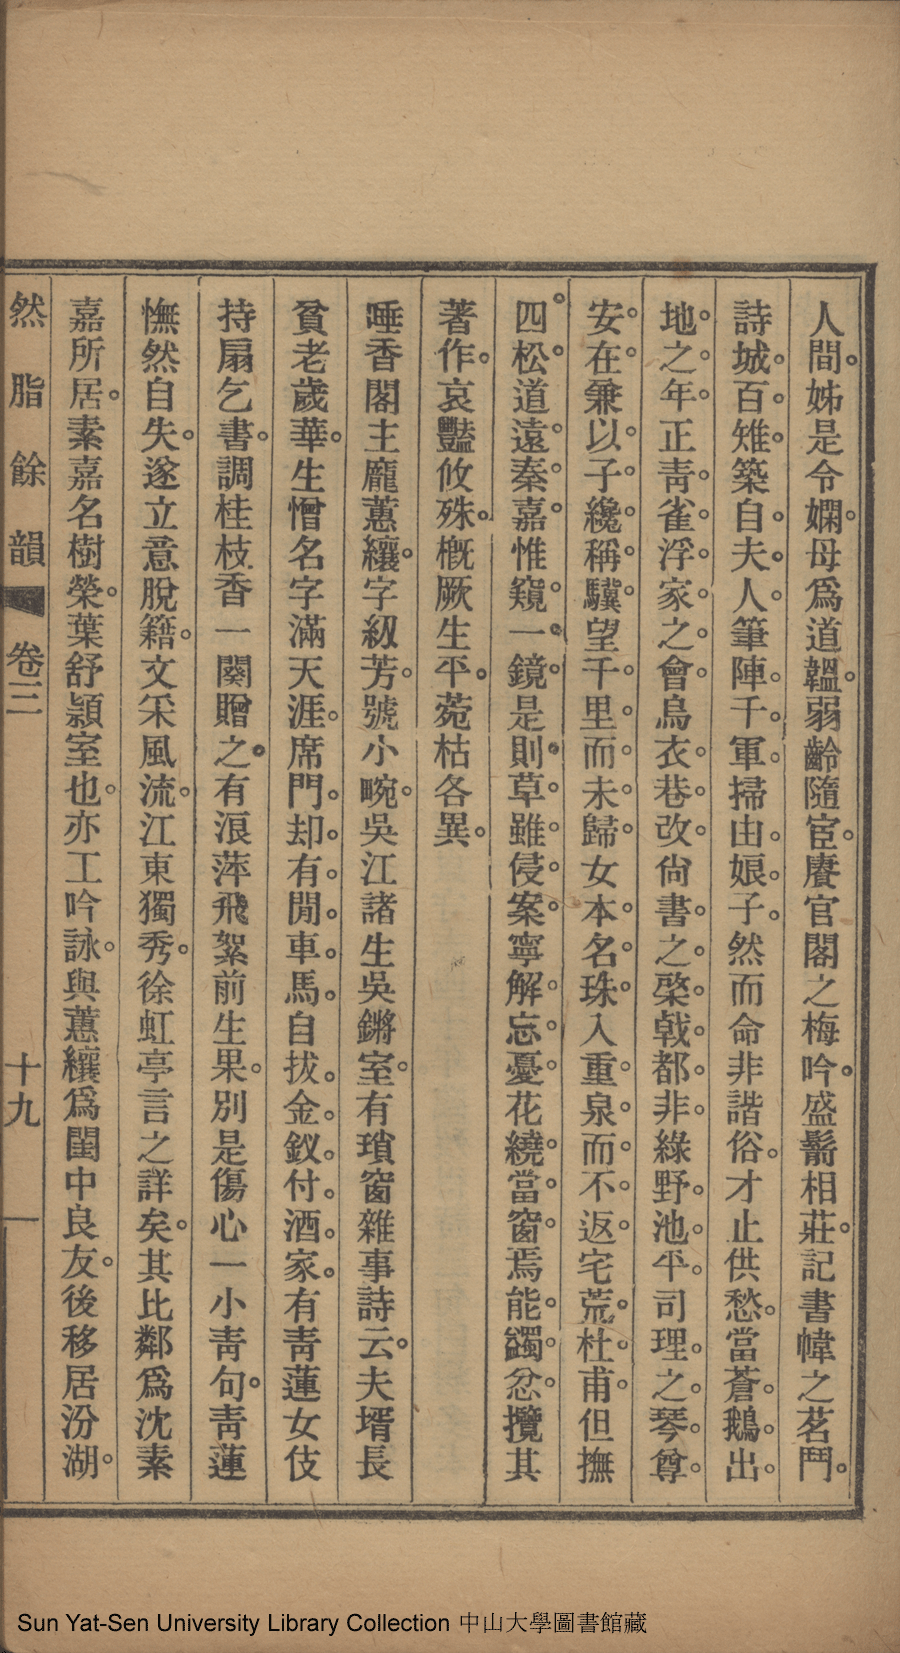 人間。姊是令嫻。母爲道韞。弱齡隨宦。賡官閣之梅吟。盛鬋相莊。記書幃之茗鬥。
詩城。百。雉。築自。夫。人。筆陣。千。軍。掃由。娘。子。然而命非諧俗。才止供愁。當蒼。鵝。出。
地。之。年。正靑。雀。浮。家。之。會。烏衣。巷。改。尙書。之。棨。戟。都。非。綠野。池。平。司理。之。琴。尊。
安。在。兼以。子。纔。稱。驥。望千。里。而。未。歸。女本。名。珠。入重。泉。而。不。返。宅荒。杜。甫。但撫
四。松。道遠。秦。嘉。惟窺。一。鏡。是則。草。雖。侵。案。寧解。忘。憂。花繞。當。窗。焉能。蠲。忿。攬其
著作。哀豔攸殊。槪厥生平。菀枯各異。
唾香閣主龐蕙纕。字紉芳。號小畹。吳江諸生吳鏘室。有瑣窗雜事詩云。夫壻長
貧老歲華。生憎名字滿天涯。席門。却。有。閒。車。馬。自拔。金。釵。付。酒。家。有靑蓮女伎
持扇乞書。調桂枝香一闋贈之。有浪萍飛絮前生果。別是傷心一小靑句。靑蓮
憮然自失。遂立意脫籍。文采風流。江東獨秀。徐虹亭言之詳矣。其比鄰爲沈素
嘉所居。素嘉名樹榮。葉舒潁室也。亦工吟詠。與蕙纕爲閨中良友。後移居汾湖。
然脂餘韻 卷三 十九
Sun Yat-Sen University Library Collection 中山大學圖書館藏